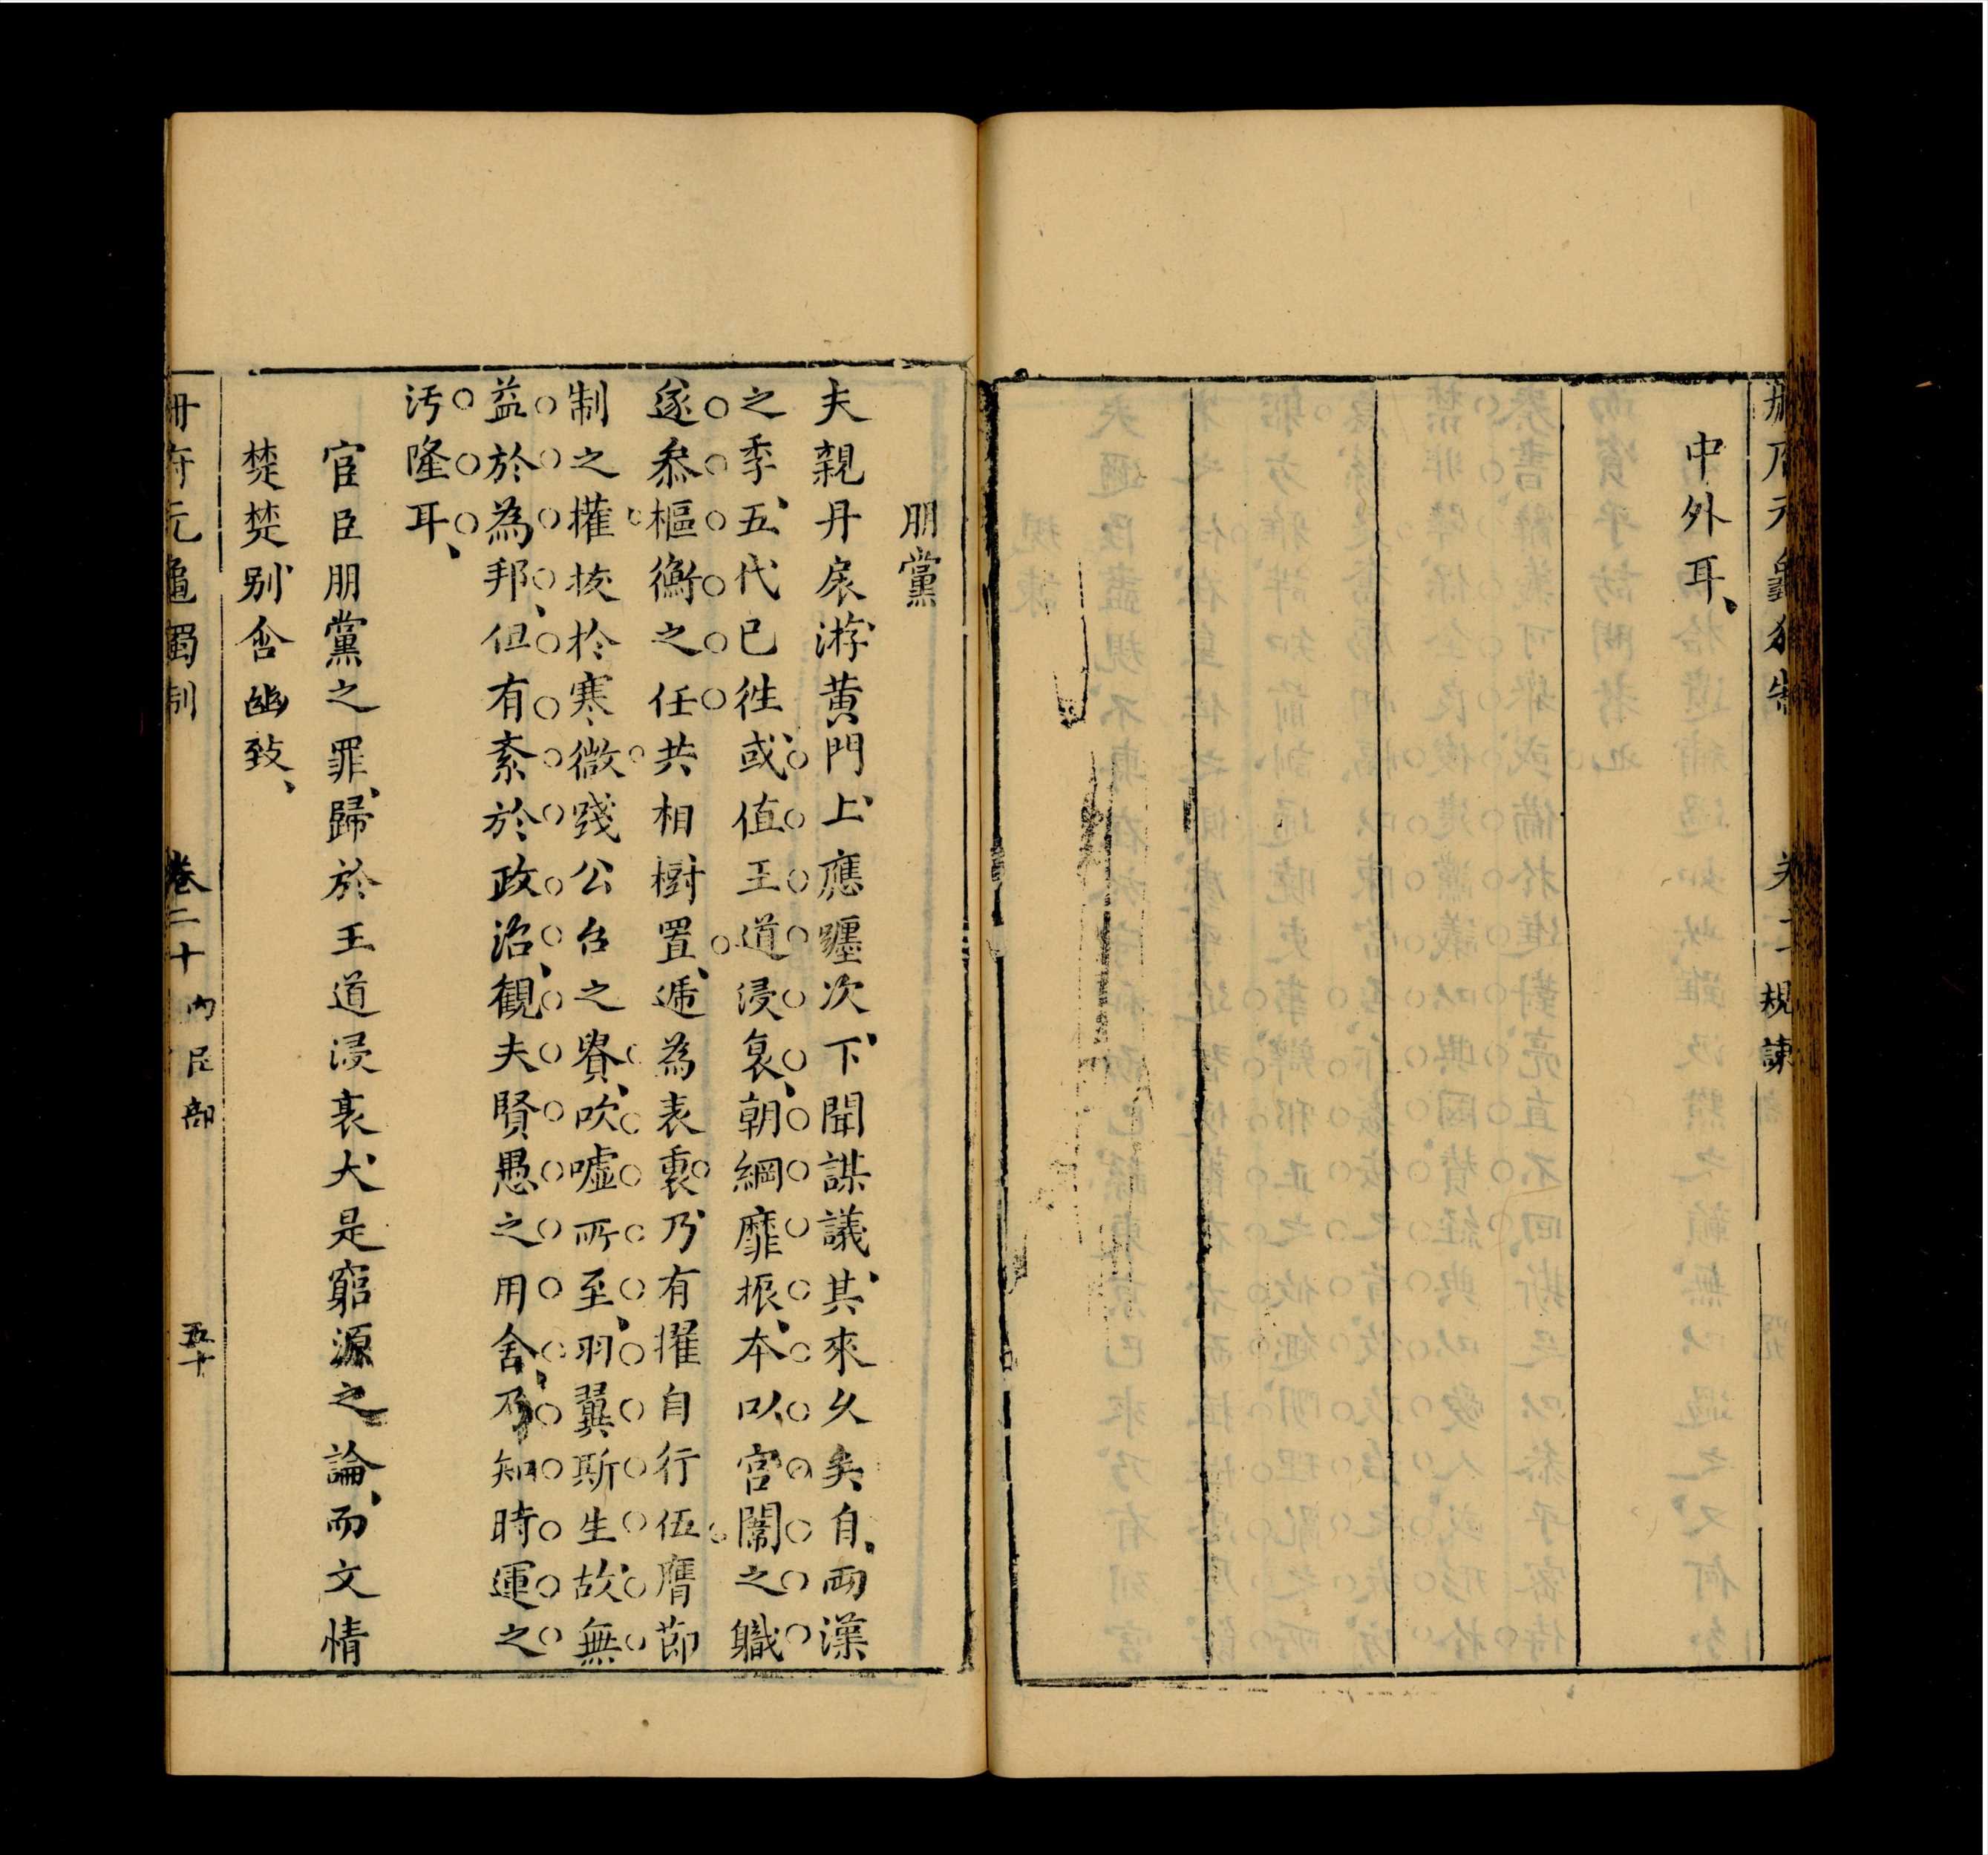 中外耳
規諫
朋黨
夫親丹扆游黄門上應纏次下聞謀議其來久矣自兩漢
之季五代已往或值王道浸衰朝綱靡振本以宮闈之職
遂叅樞衡之任共相樹置遞為表裏乃有擢自行伍膺節
制之權抜於寒微踐公台之貴吹嘘所至羽翼斯生故無
益於為邦但有紊於政治觀夫賢愚之用舍乃知時運之
汚隆耳
宦臣朋黨之罪歸於王道浸衰大是窮源之論而文情
楚楚别含幽致
冊府元龜獨制 卷二十 內臣部 五十